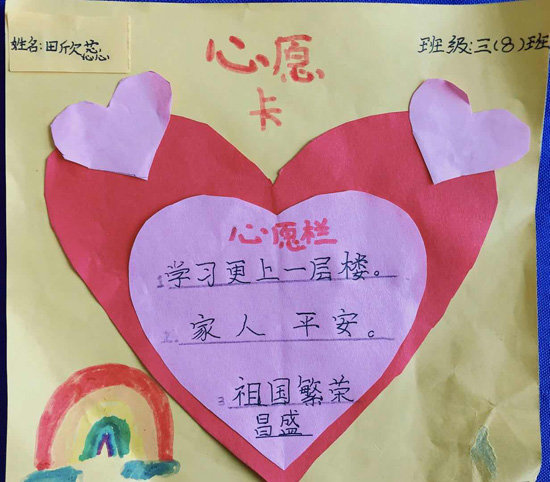 姓名:田欣蕊
班级:三(8)班
心愿
卡
心愿栏
1.学习更上一层楼。
2.家人 平安。
3.祖国繁荣
昌盛